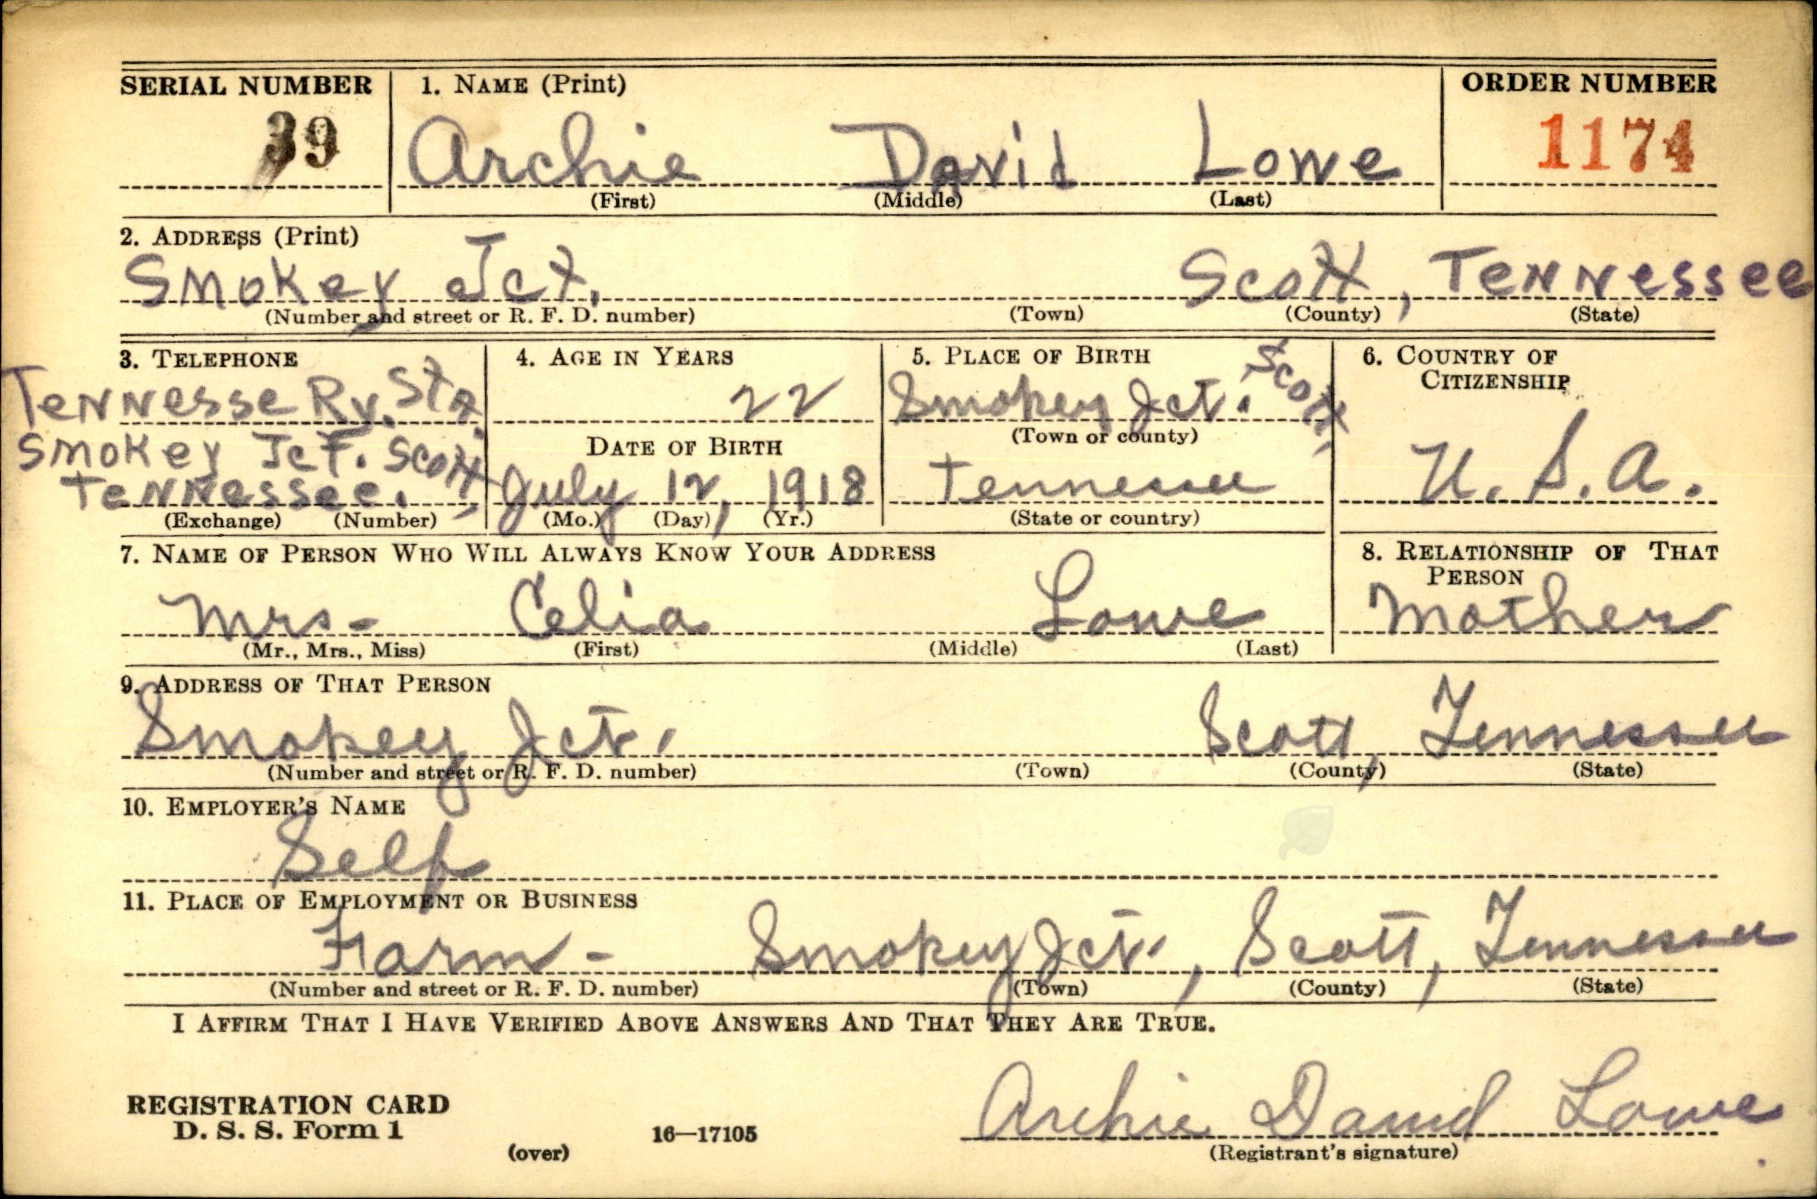 SERIAL NUMBER 1. NAME (Print) ORDER NUMBER
39 Archie David Lowe 1174
(First) (Middle) (Last)
2. ADDRESS (Print)
Smokey Jct. Scott, Tennessee
(Number and street or R. F. D. number) (Town) (County) (State)
3. TELEPHONE 4. AGE IN YEARS 5. PLACE OF BIRTH 6. COUNTRY OF
CITIZENSHIP
Tennesse Ry. Sta 22 Smokey Jct. Scott,
Smokey Jct. Scott, DATE OF BIRTH (Town or county)
Tennessee. July 12, 1918 Tennessee U. S. A.
(Exchange) (Number) (Mo.) (Day) (Yr.) (State or country)
7. NAME OF PERSON WHO WILL ALWAYS KNOW YOUR ADDRESS 8. RELATIONSHIP OF THAT
PERSON
Mrs- Celia Lowe Mother
(Mr., Mrs., Miss) (First) (Middle) (Last)
9. ADDRESS OF THAT PERSON
Smokey Jct. Scott, Tennessee
(Number and street or R. F. D. number) (Town) (County) (State)
10. EMPLOYER'S NAME
Self
11. PLACE OF EMPLOYMENT OR BUSINESS
Farm - Smokey Jct., Scott, Tennessee
(Number and street or R. F. D. number) (Town) (County) (State)
I AFFIRM THAT I HAVE VERIFIED ABOVE ANSWERS AND THAT THEY ARE TRUE.
REGISTRATION CARD
D. S. S. Form 1
(over) 16—17105 Archie David Lowe
(Registrant's signature)